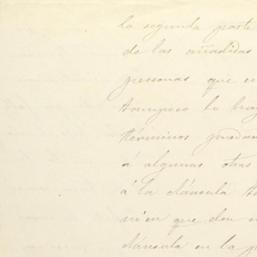 la segunda parte
de las añadidas
personas que en
tampoco la ha
términos puedan
á algunas otras
á la cláusula
que den
cláusula en la